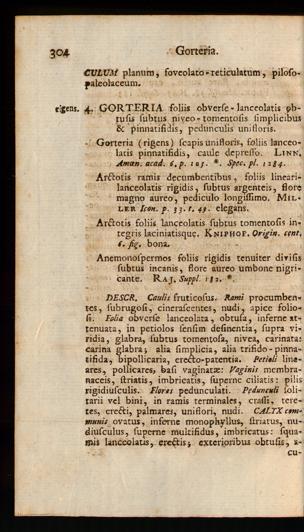 304 Gorteria.
CULUM planum, foveolato-reticulatum, piloso-
paleolaceum.
rigens. 4. GORTERIA foliis obverse-lanceolatis ob-
tusis subtus niveo-tomentosis simplicibus
& pinnatifidis, pedunculis unifloris.
Gorteria (rigens) scapis unifloris, foliis lanceo-
latis pinnatifidis, caule depresso. LINN.
Amœn. acad. 6. p. 105. *. Spec. pl. 1284.
Arctotis ramis decumbentibus, foliis lineari-
lanceolatis rigidis, subtus argenteis, flore
magno aureo, pediculo longissimo. MIL-
LER Icon. p. 33. t. 49. elegans.
Arctotis foliis lanceolatis subtus tomentosis in-
tegris laciniatisque. KNIPHOF. Origin. cent.
6. fig. bona.
Anemonospermos foliis rigidis tenuiter divisis
subtus incanis, flore aureo umbone nigri-
cante. RAJ. Suppl. 182. *.
DESCR. Caulis fruticosus. Rami procumben-
tes, subrugosi, cinerascentes, nudi, apice folio-
si. Folia obverse lanceolata, obtusa, inferne at-
tenuata, in petiolos sensim desinentia, supra vi-
ridia, glabra, subtus tomentosa, nivea, carinata:
carina glabra; alia simplicia, alia trifido-pinna-
tifida, bipollicaria, erecto-patentia. Petioli line-
ares, pollicares, basi vaginatæ: Vaginis membra-
naceis, striatis, imbricatis, superne ciliatis: pilis
rigidiusculis. Flores pedunculati. Pedunculi soli-
tarii vel bini, in ramis terminales, crassi, tere-
tes, erecti, palmares, uniflori, nudi. CALYX com-
munis ovatus, inferne monophyllus, striatus, nu-
diusculus, superne multifidus, imbricatus: squa-
mis lanceolatis, erectis, exterioribus obtusis, a-
cu-